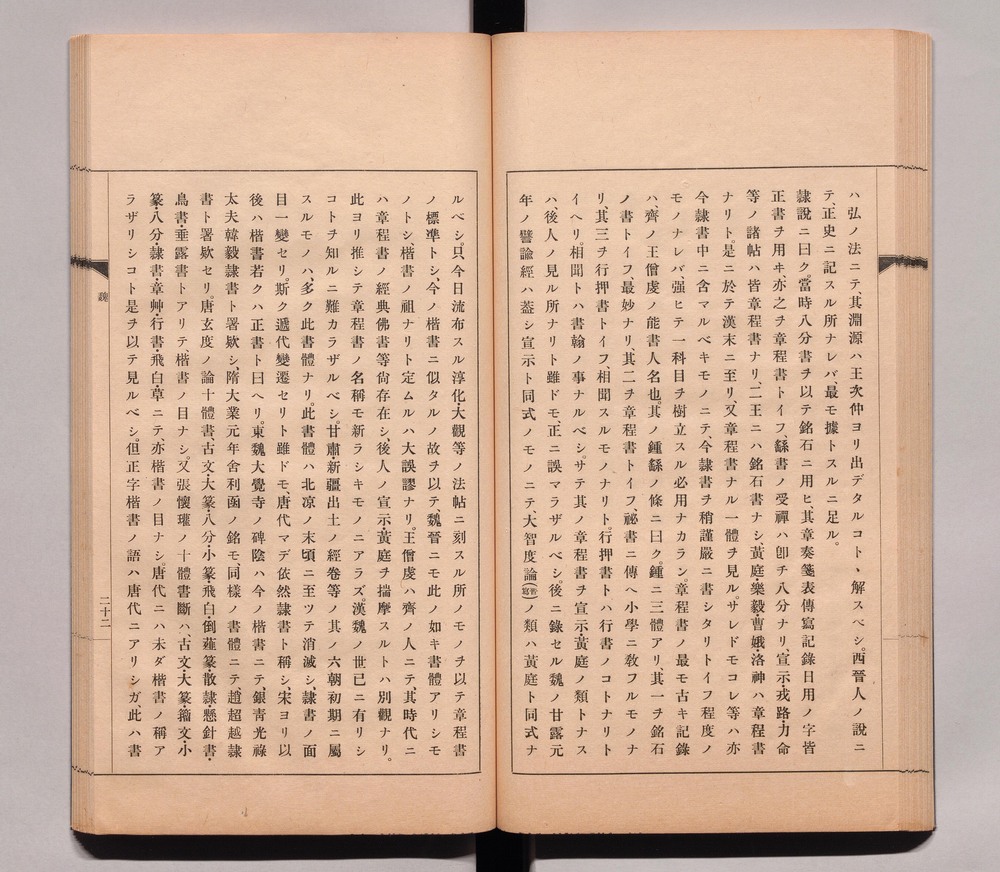 ハ弘ノ法ニテ、其淵源ハ王次仲ヨリ出デタルコト、解スベシ。西晉人ノ說ニ
テ、正史ニ記スル所ナレバ、最モ據トスルニ足ル。
隸說ニ曰ク。當時八分書ヲ以テ銘石ニ用ヒ、其章奏箋表傳寫記錄日用ノ字皆
正書ヲ用ヰ、亦之ヲ章程書トイフ、繇書ノ受禪ハ卽チ八分ナリ、宣示戎路・力命
等ノ諸帖ハ皆章程書ナリ、二王ニハ銘石書ナシ、黃庭・樂毅・曹娥・洛神ハ章程書
ナリト。是ニ於テ漢末ニ至リ、又章程書ナル一體ヲ見ル。サレドモコレ等ハ亦
今隸書中ニ含マルベキモノニテ、今隸書ヲ稍謹嚴ニ書シタリトイフ程度ノ
モノナレバ、强ヒテ一科目ヲ樹立スル必用ナカラン。章程書ノ最モ古キ記錄
ハ、齊ノ王僧虔ノ能書人名也。其ノ鍾繇ノ條ニ曰ク。鍾ニ三體アリ、其一ヲ銘石
ノ書トイフ、最妙ナリ、其二ヲ章程書トイフ、祕書ニ傳ヘ小學ニ敎フルモノナ
リ、其三ヲ行押書トイフ、相聞スルモノ、ナリト。行押書トハ行書ノコトナリト
イヘリ。相聞トハ書翰ノ事ナルベシ。サテ其ノ章程書ヲ宣示黃庭ノ類トナス
ハ、後人ノ見ル所ナリト雖ドモ、正ニ誤マラザルベシ。後ニ錄セル魏ノ甘露元
年ノ譬諭經ハ蓋シ宣示ト同式ノモノニテ、大智度論(晉寫)ノ類ハ黃庭ト同式ナ
ルベシ。只、今日流布スル淳化・大觀等ノ法帖ニ刻スル所ノモノヲ以テ章程書
ノ標準トシ、今ノ楷書ニ似タルノ故ヲ以テ、魏晉ニモ此ノ如キ書體アリシモ
ノトシ楷書ノ祖ナリト定ムルハ大誤謬ナリ。王僧虔ハ齊ノ人ニテ、其時代ニ
ハ章程書ノ經典佛書等尙存在シ、後人ノ宣示・黃庭ヲ揣摩スルトハ別觀ナリ。
此ヨリ推シテ章程書ノ名稱モ新ラシキモノニアラズ。漢魏ノ世已ニ有リシ
コトヲ知ルニ難カラザルベシ。甘肅・新疆出土ノ經卷等ノ其ノ六朝初期ニ屬
スルモノハ、多ク此書體ナリ。此書體ハ北凉ノ末頃ニ至ツテ消滅シ、隸書ノ面
目一變セリ。斯ク遞代變遷セリト雖ドモ、唐代マデ依然隸書ト稱シ、宋ヨリ以
後ハ楷書若クハ正書ト曰ヘリ。東魏大覺寺ノ碑陰ハ今ノ楷書ニテ、銀靑光祿
太夫韓毅隸書ト署欵シ、隋大業元年舍利函ノ銘モ、同樣ノ書體ニテ、趙超越隸
書ト署欵セリ。唐玄度ノ論十體書、古文・大篆・八分・小篆・飛白・倒薤篆・散隸懸針書・
鳥書・垂露書トアリテ楷書ノ目ナシ。又張懷瓘ノ十體書斷ハ古文・大篆・籀文・小
篆・八分・隸書・章艸・行書・飛白・草ニテ、亦楷書ノ目ナシ。唐代ニハ未ダ楷書ノ稱ア
ラザリシコト是ヲ以テ見ルベシ。但正字楷書ノ語ハ唐代ニアリシガ、此ハ書
魏
二十二